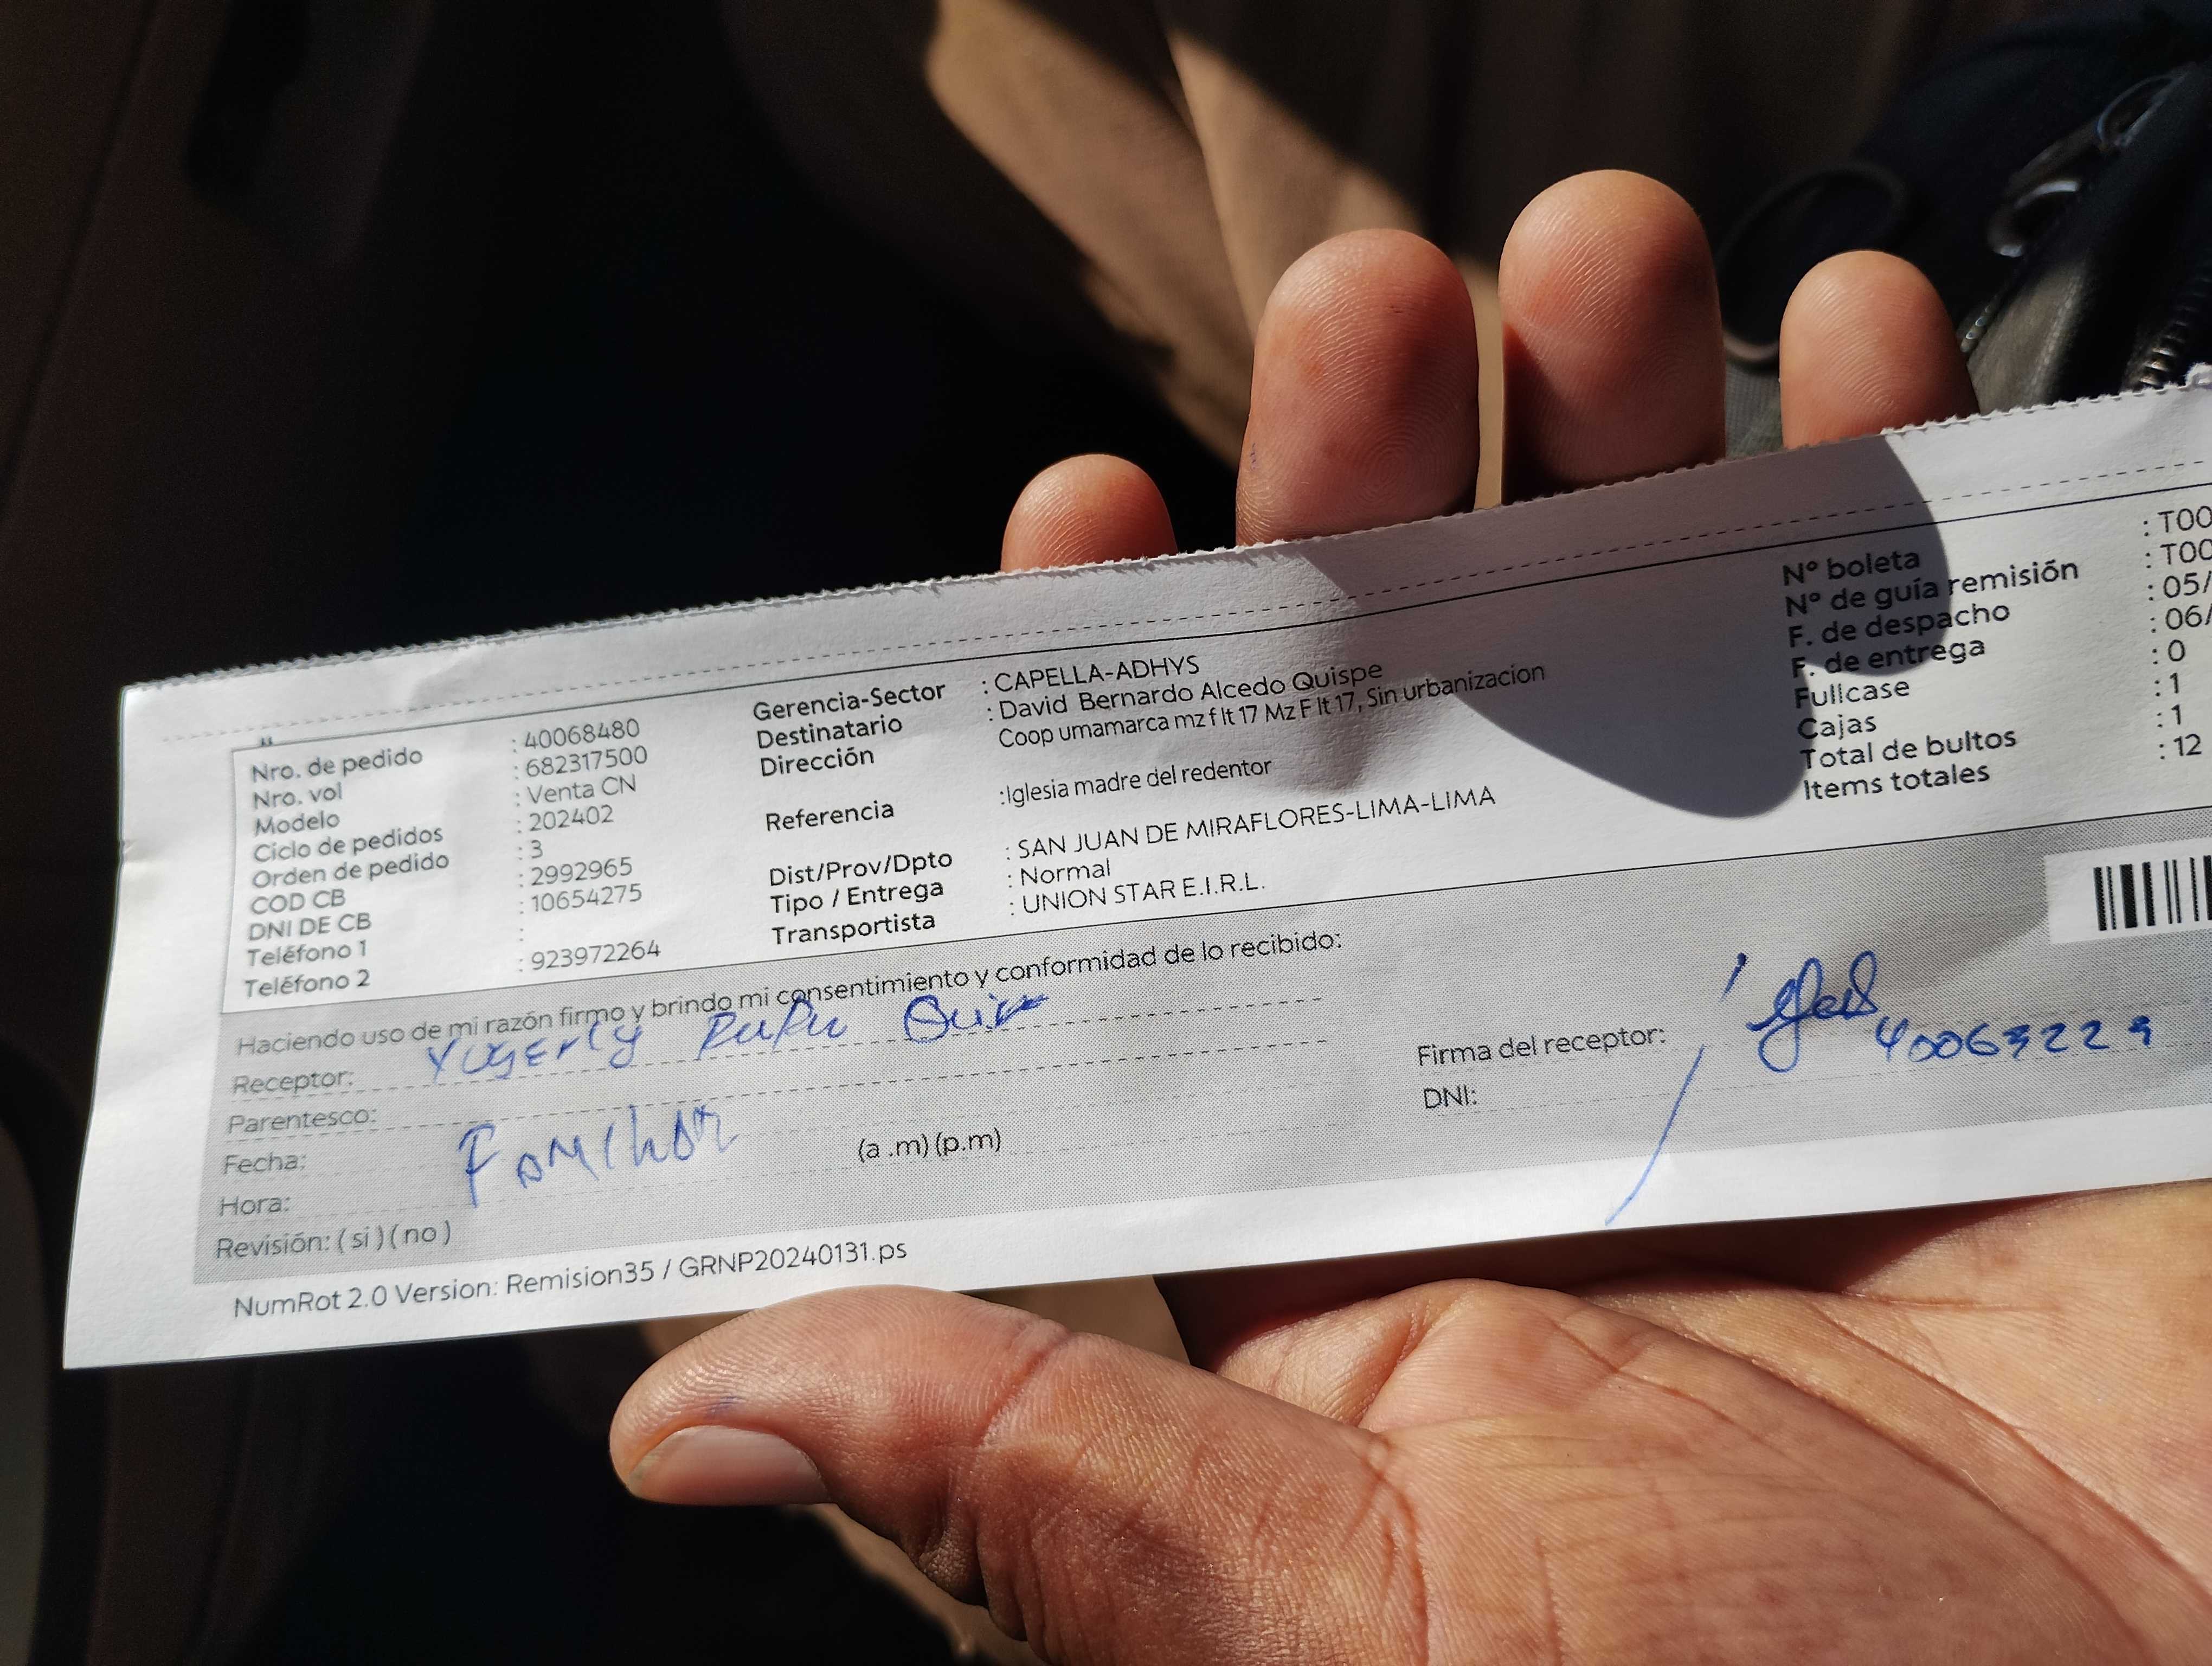 Nro. de pedido : 40068480
Nro. vol : 682317500
Modelo : Venta CN
Ciclo de pedidos : 202402
Orden de pedido : 3
COD CB : 2992965
DNI DE CB : 10654275
Teléfono 1 :
Teléfono 2 : 923972264
Gerencia-Sector : CAPELLA-ADHYS
Destinatario : David Bernardo Alcedo Quispe
Dirección Coop umamarca mz f lt 17 Mz F lt 17, Sin urbanizacion
Referencia :Iglesia madre del redentor
Dist/Prov/Dpto : SAN JUAN DE MIRAFLORES-LIMA-LIMA
Tipo / Entrega : Normal
Transportista : UNION STAR E.I.R.L.
Nº boleta : T00
Nº de guía remisión : T00
F. de despacho : 05/
F. de entrega : 06/
Fullcase : 0
Cajas : 1
Total de bultos : 1
Items totales : 12
Haciendo uso de mi razón firmo y brindo mi consentimiento y conformidad de lo recibido:
Receptor:
Parentesco:
Fecha:
Hora: (a .m) (p.m)
Revisión: ( si ) ( no )
Firma del receptor:
DNI:
NumRot 2.0 Version: Remision35 / GRNP20240131.ps